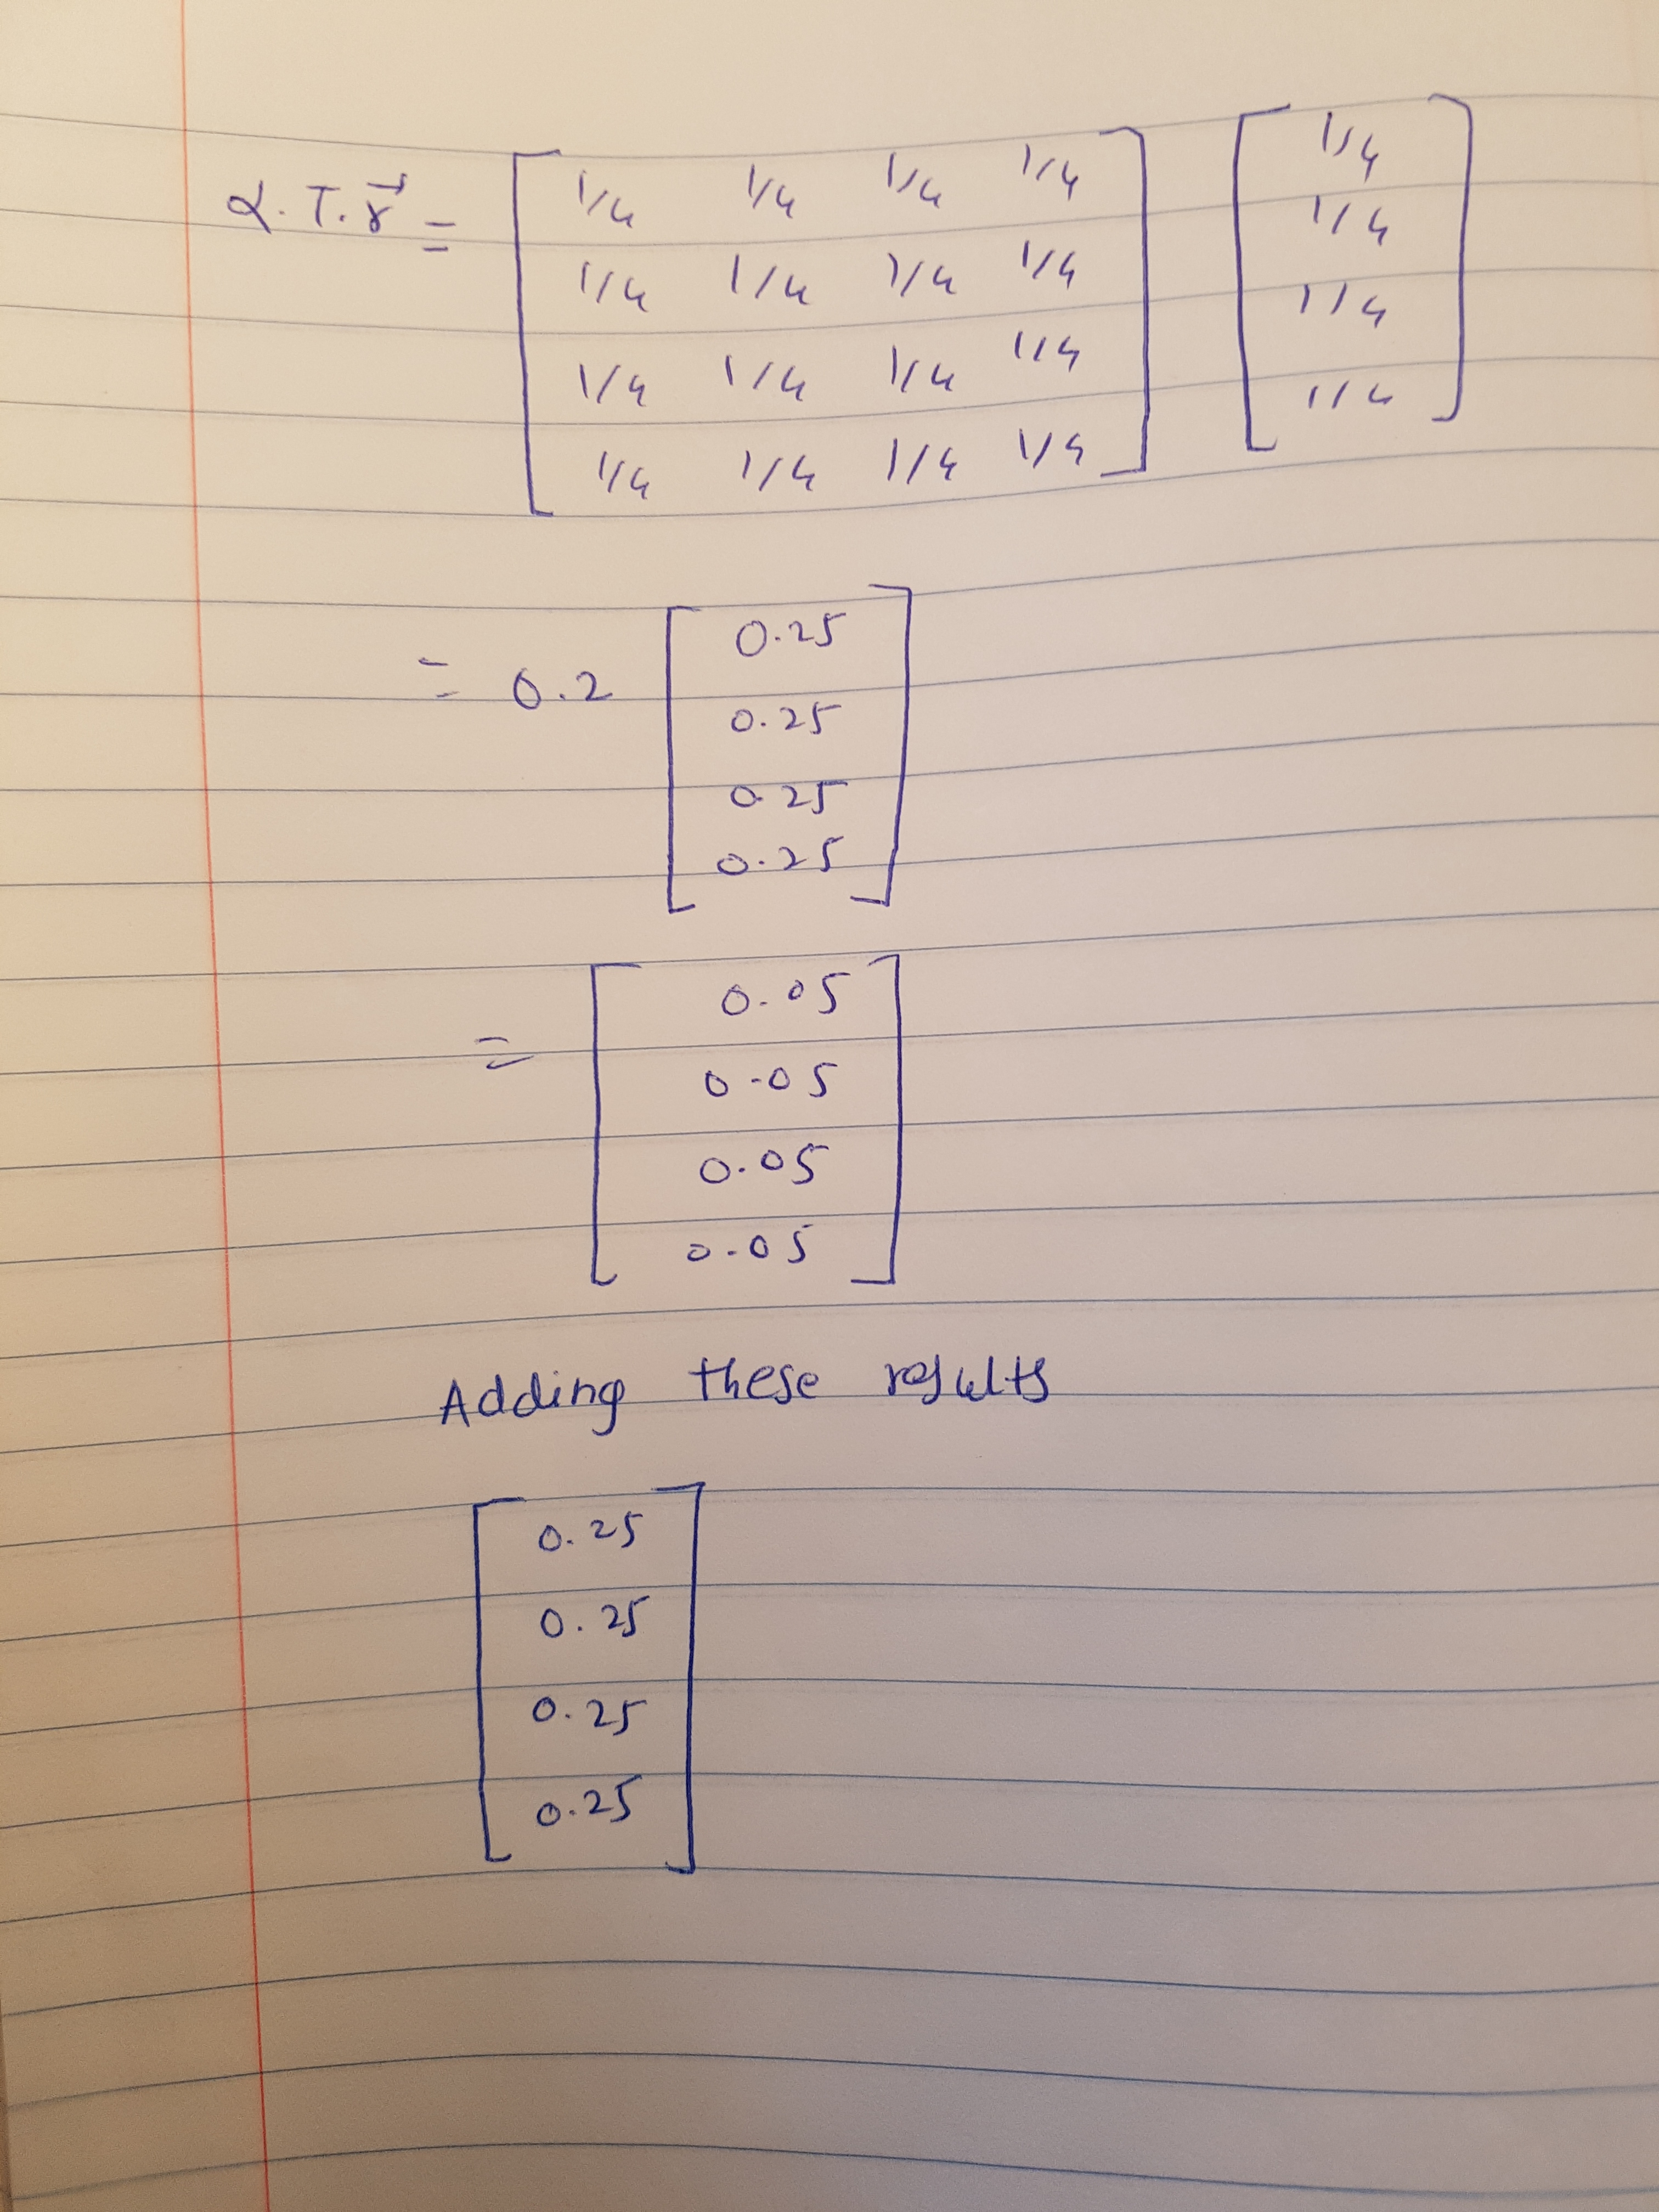 α. T. r⃗ = [ 1/4 1/4 1/4 1/4 ] [ 1/4 ]
1/4 1/4 1/4 1/4 1/4
1/4 1/4 1/4 1/4 1/4
1/4 1/4 1/4 1/4 1/4
= 0.2 [ 0.25 ]
0.25
0.25
0.25
= [ 0.05 ]
0.05
0.05
0.05
Adding these results
[ 0.25 ]
0.25
0.25
0.25